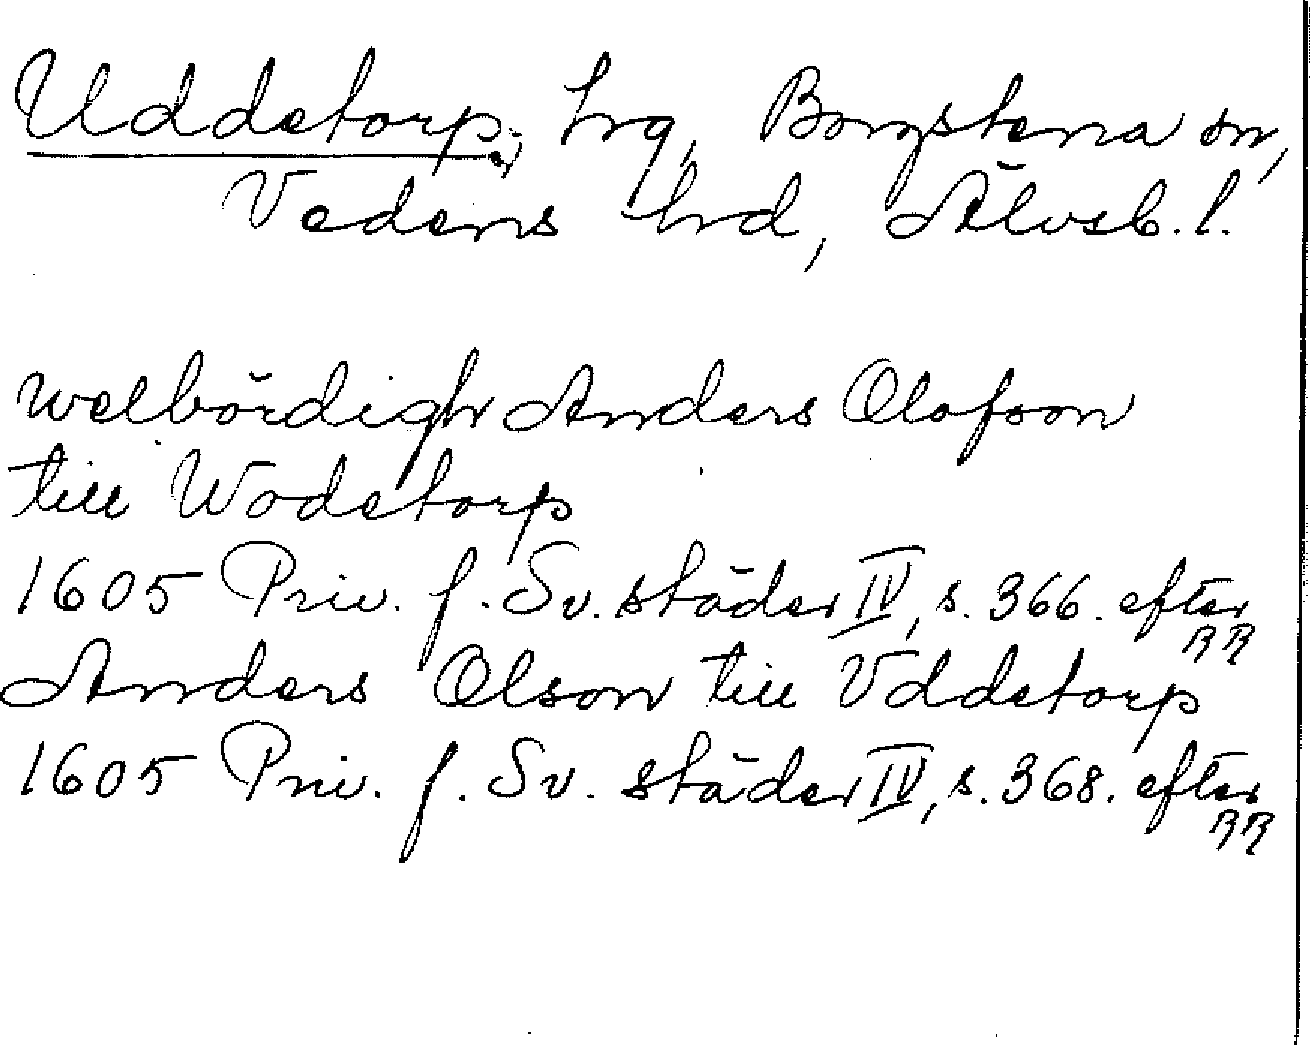 Uddetorp, hrg, Borgstena sn,
Vedens hrd, Älvsb. l.
welbördigh Anders Olofson
till Wodetorp
1605 Priv. f. Sv. städer IV, s. 366. efter
RR
Anders Olson till Vddetorp
1605 Priv. f. Sv. städer IV, s. 368. efter
RR